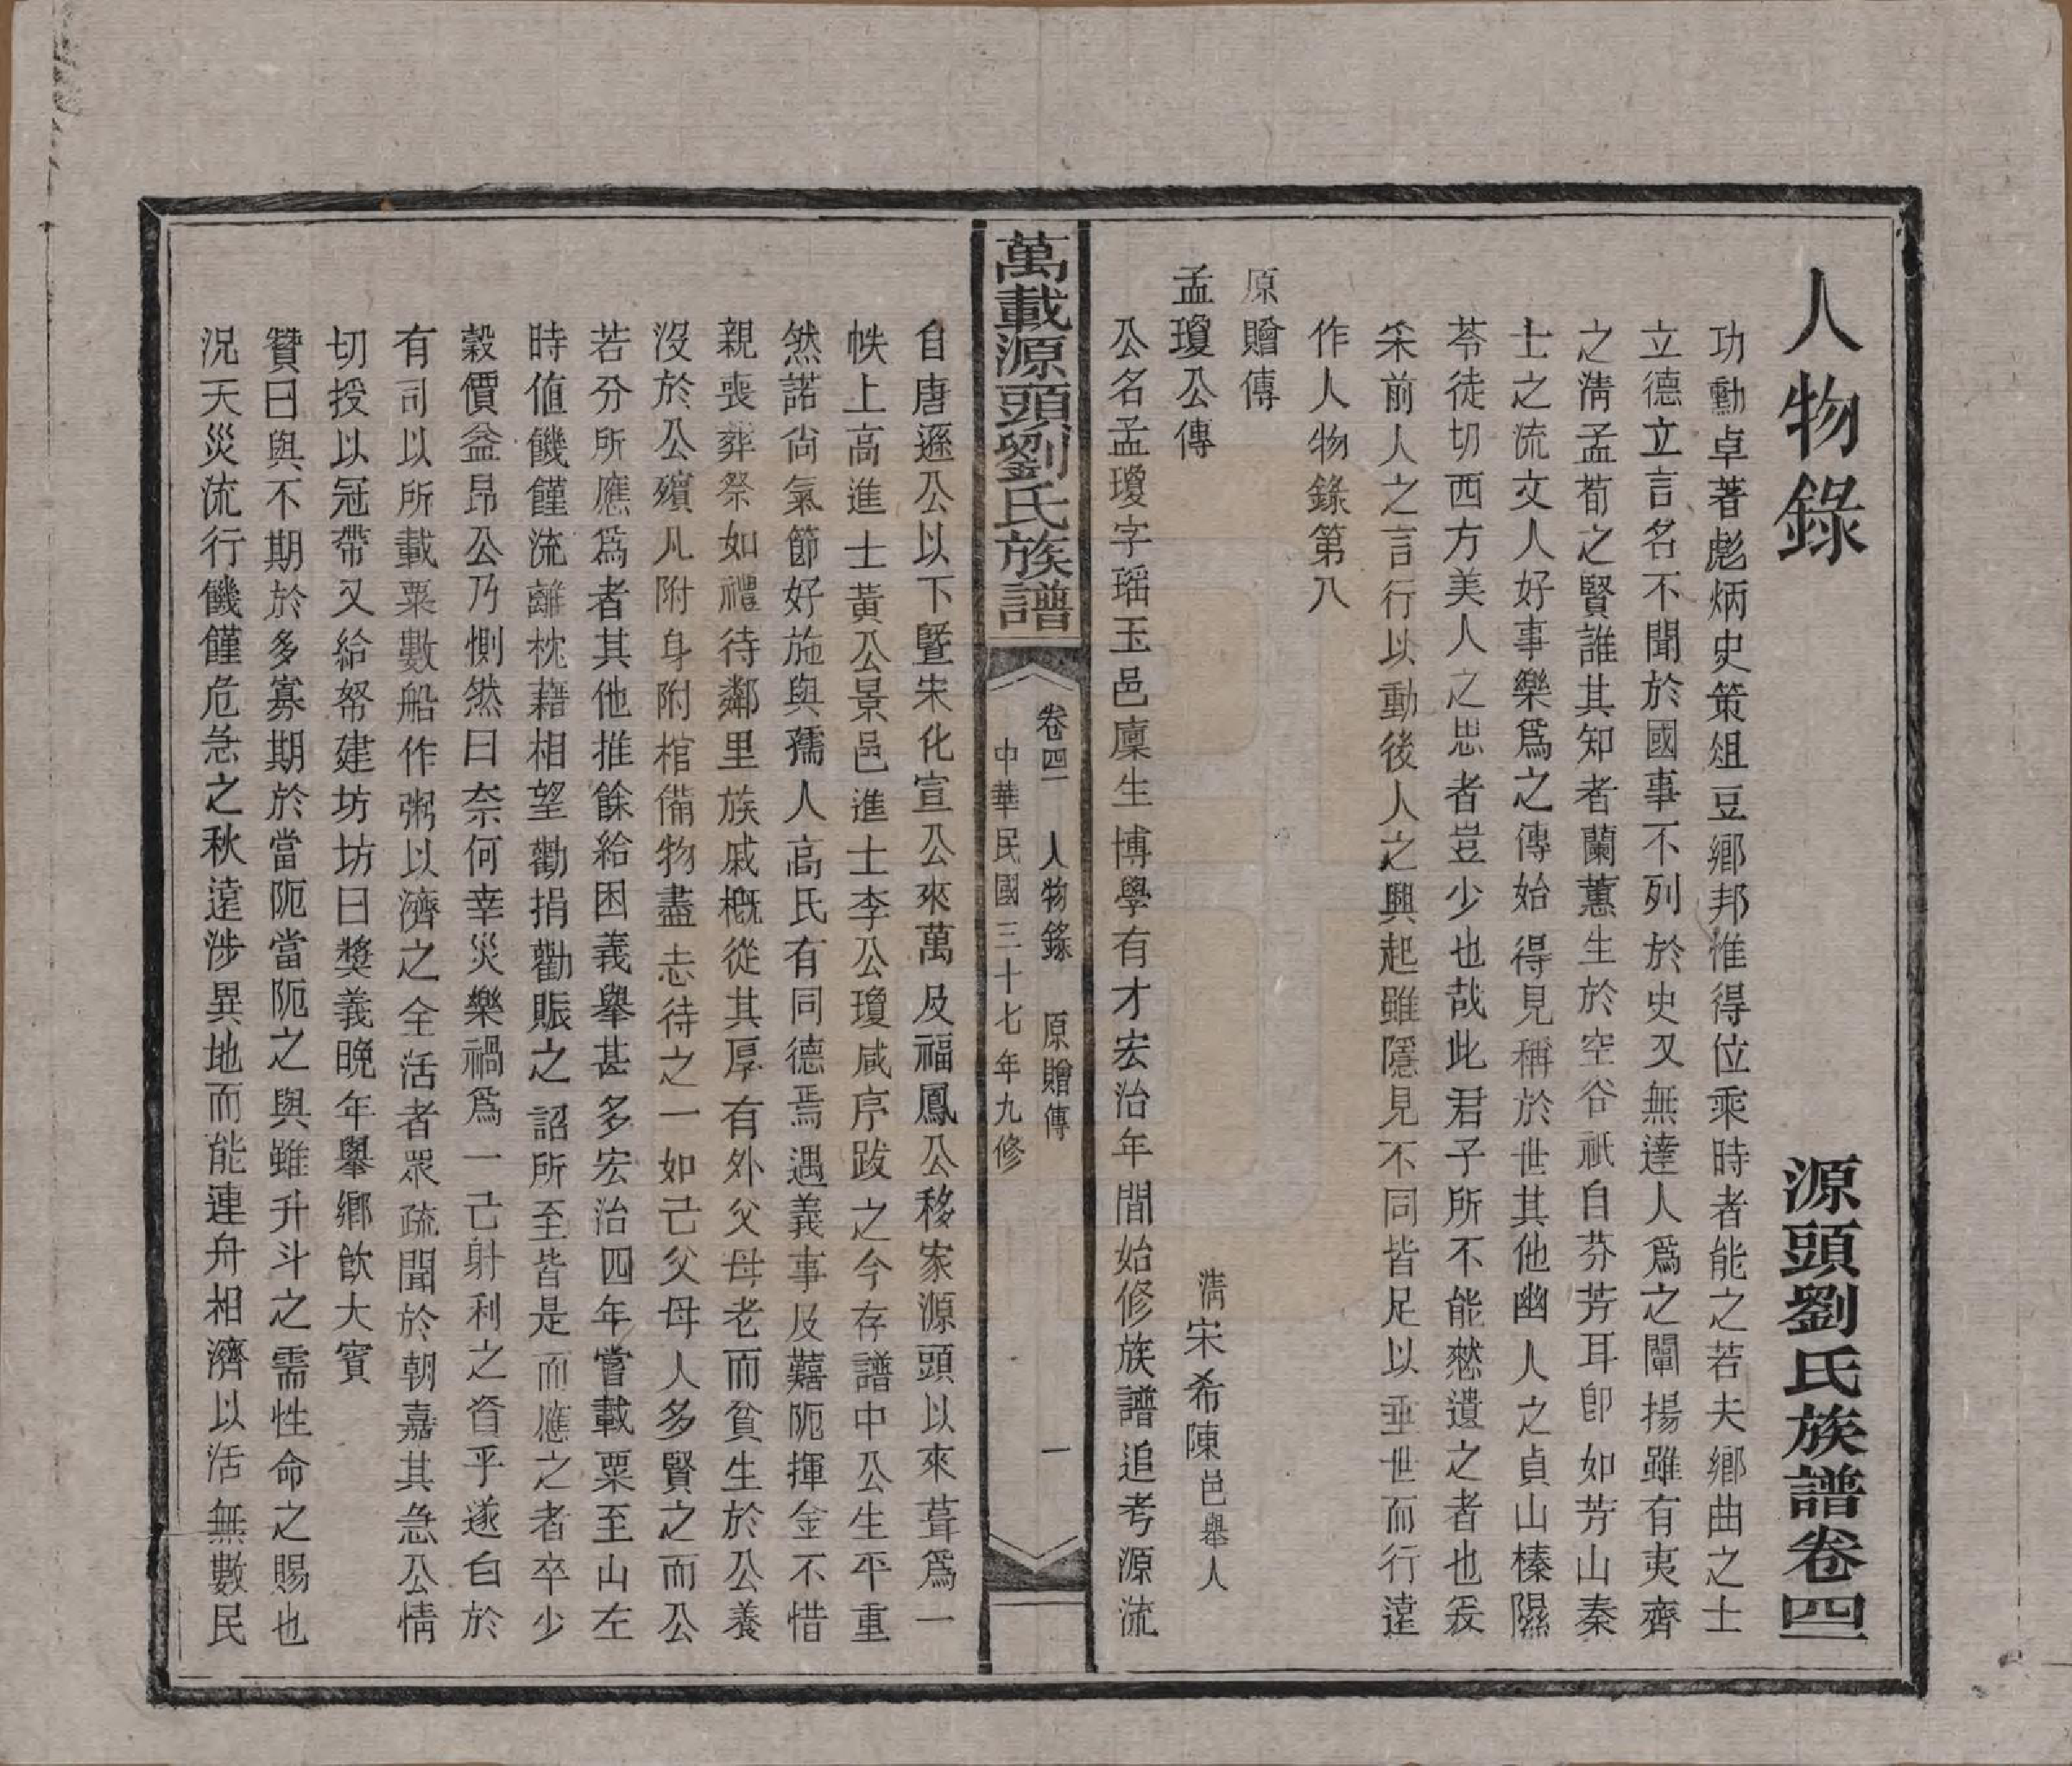 人物錄　源頭劉氏族譜卷四
功勳卓著彪炳史策俎豆鄉邦惟得位乘時者能之若夫鄉曲之士
立德立言名不聞於國事不列於史又無達人爲之闡揚雖有夷齊
之淸孟荀之賢誰其知者蘭蕙生於空谷祇自芬芳耳卽如芳山秦
士之流文人好事樂爲之傳始得見稱於世其他幽人之貞山榛隰
苓徒切西方美人之思者豈少也哉此君子所不能慭遺之者也爰
采前人之言行以動後人之興起雖隱見不同皆足以垂世而行遠
作人物錄第八
原贈傳
孟瓊公傳　淸宋希陳邑舉人
公名孟瓊字瑶玉邑廩生博學有才宏治年間始修族譜追考源流
萬載源頭劉氏族譜
卷四　人物錄　原贈傳　一
中華民國三十七年九修
自唐遜公以下暨宋化宣公來萬及福鳳公移家源頭以來葺爲一
帙上高進士黃公景邑進士李公瓊咸序跋之今存譜中公生平重
然諾尙氣節好施與孺人高氏有同德焉遇義事及囏阨揮金不惜
親喪葬祭如禮待鄰里族戚槪從其厚有外父母老而貧生於公養
沒於公殯凡附身附棺備物盡志待之一如己父母人多賢之而公
若分所應爲者其他推餘給困義舉甚多宏治四年嘗載粟至山左
時値饑饉流離枕藉相望勸捐勸賑之詔所至皆是而應之者卒少
穀價益昻公乃惻然曰奈何幸災樂禍爲一己射利之資乎遂白於
有司以所載粟數船作粥以濟之全活者眾疏聞於朝嘉其急公情
切授以冠帶又給帑建坊坊曰獎義晩年舉鄉飮大賓
贊曰與不期於多寡期於當阨當阨之與雖升斗之需性命之賜也
況天災流行饑饉危急之秋遠涉異地而能連舟相濟以活無數民